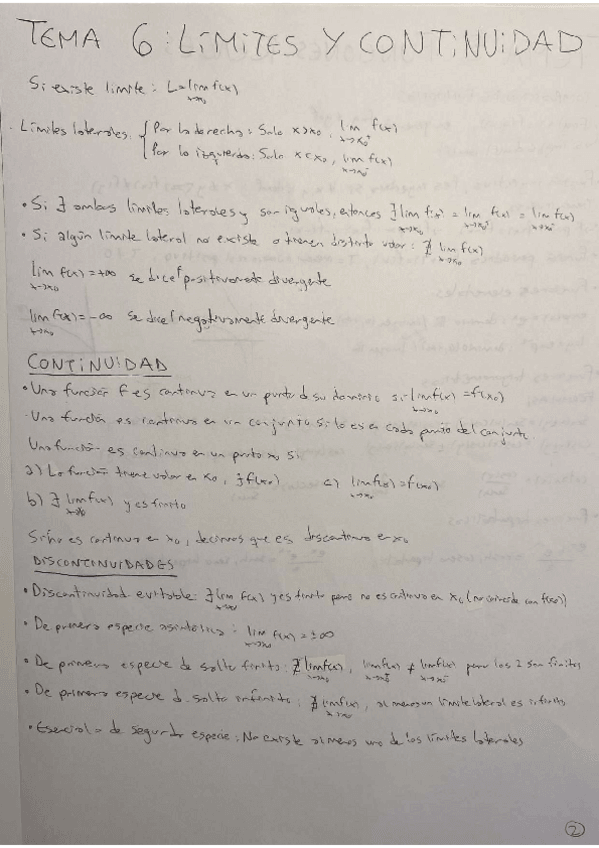 TEMA 6: LÍMITES Y CONTINUIDAD
Si existe límite: L=lim f(x)
x→x₀
· Límites laterales { Por la derecha: Solo x>x₀, lim f(x)
x→x₀⁺
Por la izquierda: Solo x<x₀, lim f(x)
x→x₀⁻
• Si ∃ ambos límites laterales y son iguales, entonces ∃ lim f(x) = lim f(x) = lim f(x)
• Si algún límite lateral no existe o tienen distinto valor: ∄ lim f(x)
x→x₀
lim f(x) = +∞ se dice f positivamente divergente
x→x₀
lim f(x) = -∞ se dice f negativamente divergente
x→x₀
CONTINUIDAD
• Una función f es continua en un punto d su dominio si lim f(x) = f(x₀)
x→x₀
· Una función es continua en un conjunto si lo es en cada punto del conjunto
Una función es continua en un punto x₀ si
a) La función tiene valor en x₀, ∃ f(x₀) c) lim f(x) = f(x₀)
x→x₀
b) ∃ lim f(x) y es finito
Si no es continua en x₀, decimos que es discontinua en x₀
DISCONTINUIDADES
• Discontinuidad evitable: ∃ lim f(x) y es finito pero no es continua en x₀ (no coincide con f(x₀))
• De primera especie asintótica: lim f(x) = ±∞
x→x₀
• De primera especie de salto finito: ∄ lim f(x), lim f(x) ≠ lim f(x) pero los 2 son finitos
• De primera especie d. salto infinito: ∄ lim f(x), al menos un límite lateral es infinito
• Esencial o de segunda especie: No existe al menos uno de los límites laterales
2